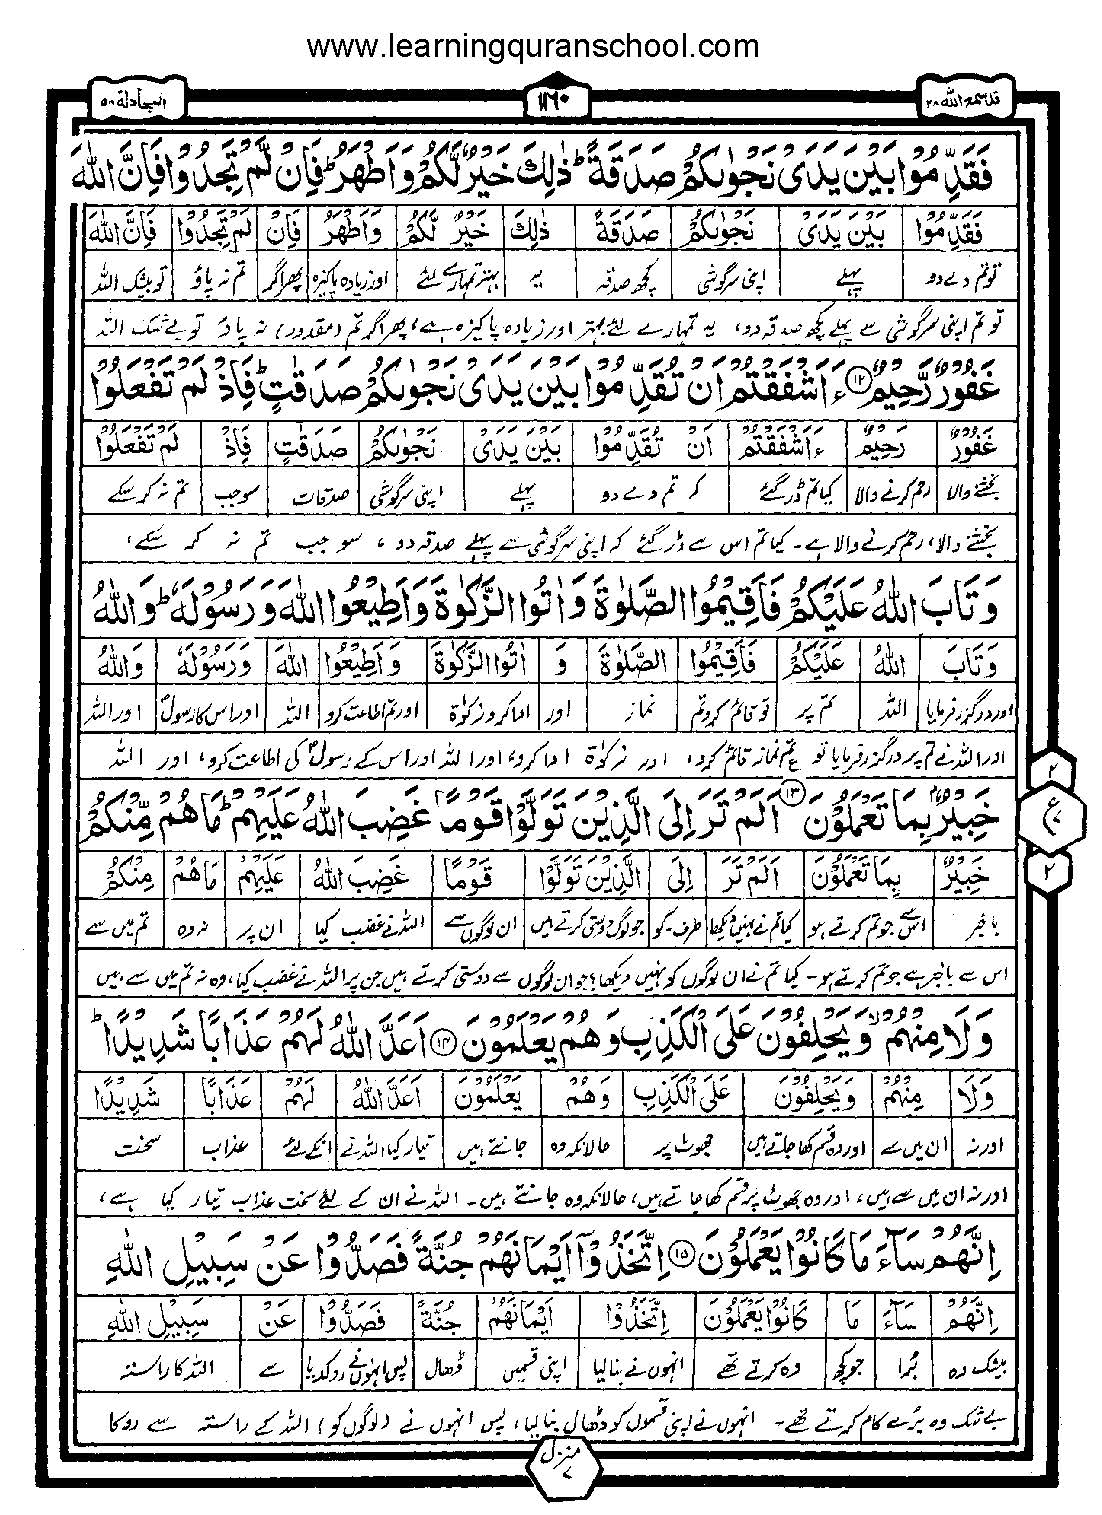 www.learningquranschool.com
قد سمع الله ۲۸
۱۱۶۰
المجادلة ۵۸
فَقَدِّمُوْا بَيْنَ يَدَىْ نَجْوٰىكُمْ صَدَقَةً ؕ ذٰلِكَ خَيْرٌ لَّكُمْ وَاَطْهَرُ ؕ فَاِنْ لَّمْ تَجِدُوْا فَاِنَّ اللّٰهَ
فَقَدِّمُوْا بَيْنَ يَدَىْ نَجْوٰىكُمْ صَدَقَةً ذٰلِكَ خَيْرٌ لَّكُمْ وَاَطْهَرُ فَاِنْ لَّمْ تَجِدُوْا فَاِنَّ اللّٰهَ
تو تم دے دو پہلے اپنی سرگوشی کچھ صدقہ یہ بہتر تمہارے لئے اور زیادہ پاکیزہ پھر اگر تم نہ پاؤ تو بیشک اللہ
تو تم اپنی سرگوشی سے پہلے کچھ صدقہ دو، یہ تمہارے لئے بہتر اور زیادہ پاکیزہ ہے، پھر اگر تم (مقدور) نہ پاؤ تو بے شک اللہ
غَفُوْرٌ رَّحِيْمٌ ۱۲ ءَاَشْفَقْتُمْ اَنْ تُقَدِّمُوْا بَيْنَ يَدَىْ نَجْوٰىكُمْ صَدَقٰتٍ ؕ فَاِذْ لَمْ تَفْعَلُوْا
غَفُوْرٌ رَحِيْمٌ ءَاَشْفَقْتُمْ اَنْ تُقَدِّمُوْا بَيْنَ يَدَىْ نَجْوٰىكُمْ صَدَقٰتٍ فَاِذْ لَمْ تَفْعَلُوْا
بخشنے والا رحم کرنے والا کیا تم ڈر گئے کہ تم دے دو پہلے اپنی سرگوشی صدقات سو جب تم نہ کر سکے
بخشنے والا، رحم کرنے والا ہے۔ کیا تم اس سے ڈر گئے کہ اپنی سرگوشی سے پہلے صدقہ دو، سو جب تم نہ کر سکے،
وَتَابَ اللّٰهُ عَلَيْكُمْ فَاَقِيْمُوا الصَّلٰوةَ وَاٰتُوا الزَّكٰوةَ وَاَطِيْعُوا اللّٰهَ وَرَسُوْلَهٗ ؕ وَاللّٰهُ
وَتَابَ اللّٰهُ عَلَيْكُمْ فَاَقِيْمُوا الصَّلٰوةَ وَ اٰتُوا الزَّكٰوةَ وَاَطِيْعُوا اللّٰهَ وَرَسُوْلَهٗ وَاللّٰهُ
اور درگزر فرمایا اللہ تم پر تو قائم کرو تم نماز اور ادا کرو زکوٰۃ اور تم اطاعت کرو اللہ اور اس کا رسولؐ اور اللہ
اور اللہ نے تم پر درگزر فرمایا تو تم نماز قائم کرو، اور زکوٰۃ ادا کرو، اور اللہ اور اس کے رسولؐ کی اطاعت کرو، اور اللہ
خَبِيْرٌۢ بِمَا تَعْمَلُوْنَ ۱۳ اَلَمْ تَرَ اِلَى الَّذِيْنَ تَوَلَّوْا قَوْمًا غَضِبَ اللّٰهُ عَلَيْهِمْ ؕ مَا هُمْ مِّنْكُمْ
خَبِيْرٌ بِمَا تَعْمَلُوْنَ اَلَمْ تَرَ اِلَى الَّذِيْنَ تَوَلَّوْا قَوْمًا غَضِبَ اللّٰهُ عَلَيْهِمْ مَا هُمْ مِنْكُمْ
باخبر اس سے جو تم کرتے ہو کیا تم نے نہیں دیکھا طرف۔کو جو لوگ دوستی کرتے ہیں ان لوگوں سے اللہ نے غضب کیا ان پر نہ وہ تم میں سے
اس سے باخبر ہے جو تم کرتے ہو۔ کیا تم نے ان لوگوں کو نہیں دیکھا؟ جو ان لوگوں سے دوستی کرتے ہیں جن پر اللہ نے غضب کیا، وہ نہ تم میں سے ہیں
وَلَا مِنْهُمْ ۙ وَيَحْلِفُوْنَ عَلَى الْكَذِبِ وَهُمْ يَعْلَمُوْنَ ۱۴ اَعَدَّ اللّٰهُ لَهُمْ عَذَابًا شَدِيْدًا ؕ
وَلَا مِنْهُمْ وَيَحْلِفُوْنَ عَلَى الْكَذِبِ وَهُمْ يَعْلَمُوْنَ اَعَدَّ اللّٰهُ لَهُمْ عَذَابًا شَدِيْدًا
اور نہ ان میں سے اور وہ قسم کھا جاتے ہیں جھوٹ پر حالانکہ وہ جانتے ہیں تیار کیا اللہ نے انکے لئے عذاب سخت
اور نہ ان میں سے ہیں، اور وہ جھوٹ پر قسم کھا جاتے ہیں، حالانکہ وہ جانتے ہیں۔ اللہ نے ان کے لئے سخت عذاب تیار کیا ہے،
اِنَّهُمْ سَآءَ مَا كَانُوْا يَعْمَلُوْنَ ۱۵ اِتَّخَذُوْٓا اَيْمَانَهُمْ جُنَّةً فَصَدُّوْا عَنْ سَبِيْلِ اللّٰهِ
اِنَّهُمْ سَآءَ مَا كَانُوْا يَعْمَلُوْنَ اِتَّخَذُوْا اَيْمَانَهُمْ جُنَّةً فَصَدُّوْا عَنْ سَبِيْلِ اللّٰهِ
بیشک وہ بُرا جو کچھ وہ کرتے تھے انہوں نے بنا لیا اپنی قسمیں ڈھال پس انہوں نے روک دیا سے اللہ کا راستہ
بے شک وہ بُرے کام کرتے تھے۔ انہوں نے اپنی قسموں کو ڈھال بنا لیا، پس انہوں نے (لوگوں کو) اللہ کے راستہ سے روکا
۲
ع
۲
منزل ۷